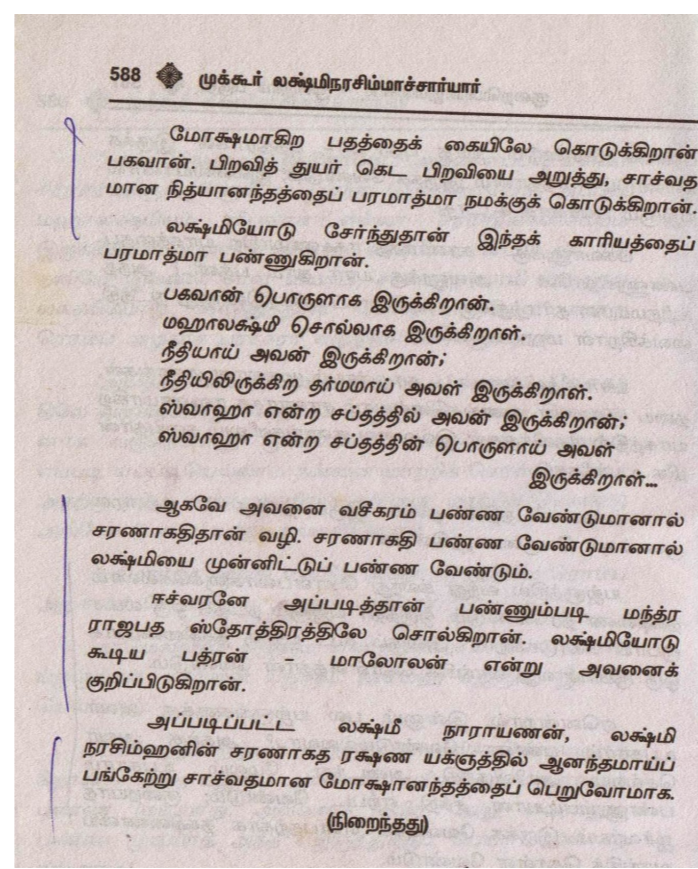 588 முக்கூர் லக்ஷ்மிநரசிம்மாச்சார்யார்
மோக்ஷமாகிற பதத்தைக் கையிலே கொடுக்கிறான்
பகவான். பிறவித் துயர் கெட பிறவியை அறுத்து, சாச்வத
மான நித்யானந்தத்தைப் பரமாத்மா நமக்குக் கொடுக்கிறான்.
லக்ஷ்மியோடு சேர்ந்துதான் இந்தக் காரியத்தைப்
பரமாத்மா பண்ணுகிறான்.
பகவான் பொருளாக இருக்கிறான்.
மஹாலக்ஷ்மி சொல்லாக இருக்கிறாள்.
நீதியாய் அவன் இருக்கிறான்;
நீதியிலிருக்கிற தர்மமாய் அவள் இருக்கிறாள்.
ஸ்வாஹா என்ற சப்தத்தில் அவன் இருக்கிறான்;
ஸ்வாஹா என்ற சப்தத்தின் பொருளாய் அவள்
இருக்கிறாள்...
ஆகவே அவனை வசீகரம் பண்ண வேண்டுமானால்
சரணாகதிதான் வழி. சரணாகதி பண்ண வேண்டுமானால்
லக்ஷ்மியை முன்னிட்டுப் பண்ண வேண்டும்.
ஈச்வரனே அப்படித்தான் பண்ணும்படி மந்த்ர
ராஜபத ஸ்தோத்திரத்திலே சொல்கிறான். லக்ஷ்மியோடு
கூடிய பத்ரன் – மாலோலன் என்று அவனைக்
குறிப்பிடுகிறான்.
அப்படிப்பட்ட லக்ஷ்மீ நாராயணன், லக்ஷ்மி
நரசிம்ஹனின் சரணாகத ரக்ஷண யக்ஞத்தில் ஆனந்தமாய்ப்
பங்கேற்று சாச்வதமான மோக்ஷானந்தத்தைப் பெறுவோமாக.
(நிறைந்தது)